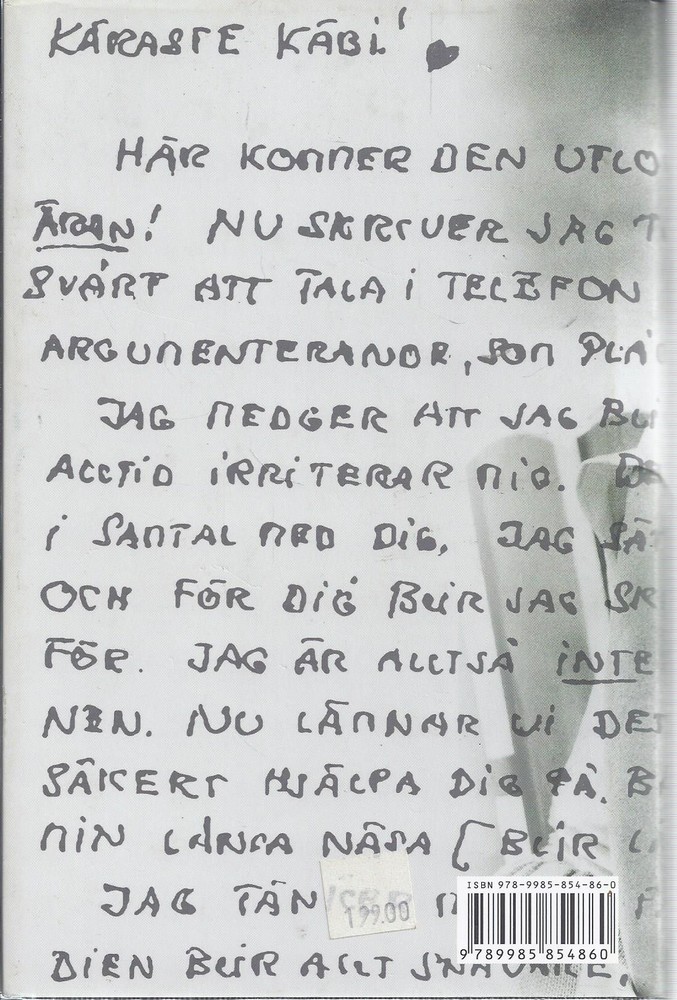 KÄRASTE KÄBI!
HÄR KOMMER DEN UTLO
ÄRAN! NU SKRIVER JAG T
SVÅRT ATT TALA I TELEFON
ARGUMENTERANDE, SOM PLÅ
JAG MEDGER ATT JAG BLI
ALLTID IRRITERAR MIG. DE
I SAMTAL MED DIG. JAG SÄT
OCH FÖR DIG BLIR JAG SK
FÖR. JAG ÄR ALLTSÅ INTE
NEN. NU LÄMNAR VI DET
SÄKERT HJÄLPA DIG PÅ. B
MIN LÅNGA NÄSA (BLIR L
JAG TÄN
199.00
DIEN BLIR ALLT
ISBN 978-9985-854-86-0
9 789985 854860